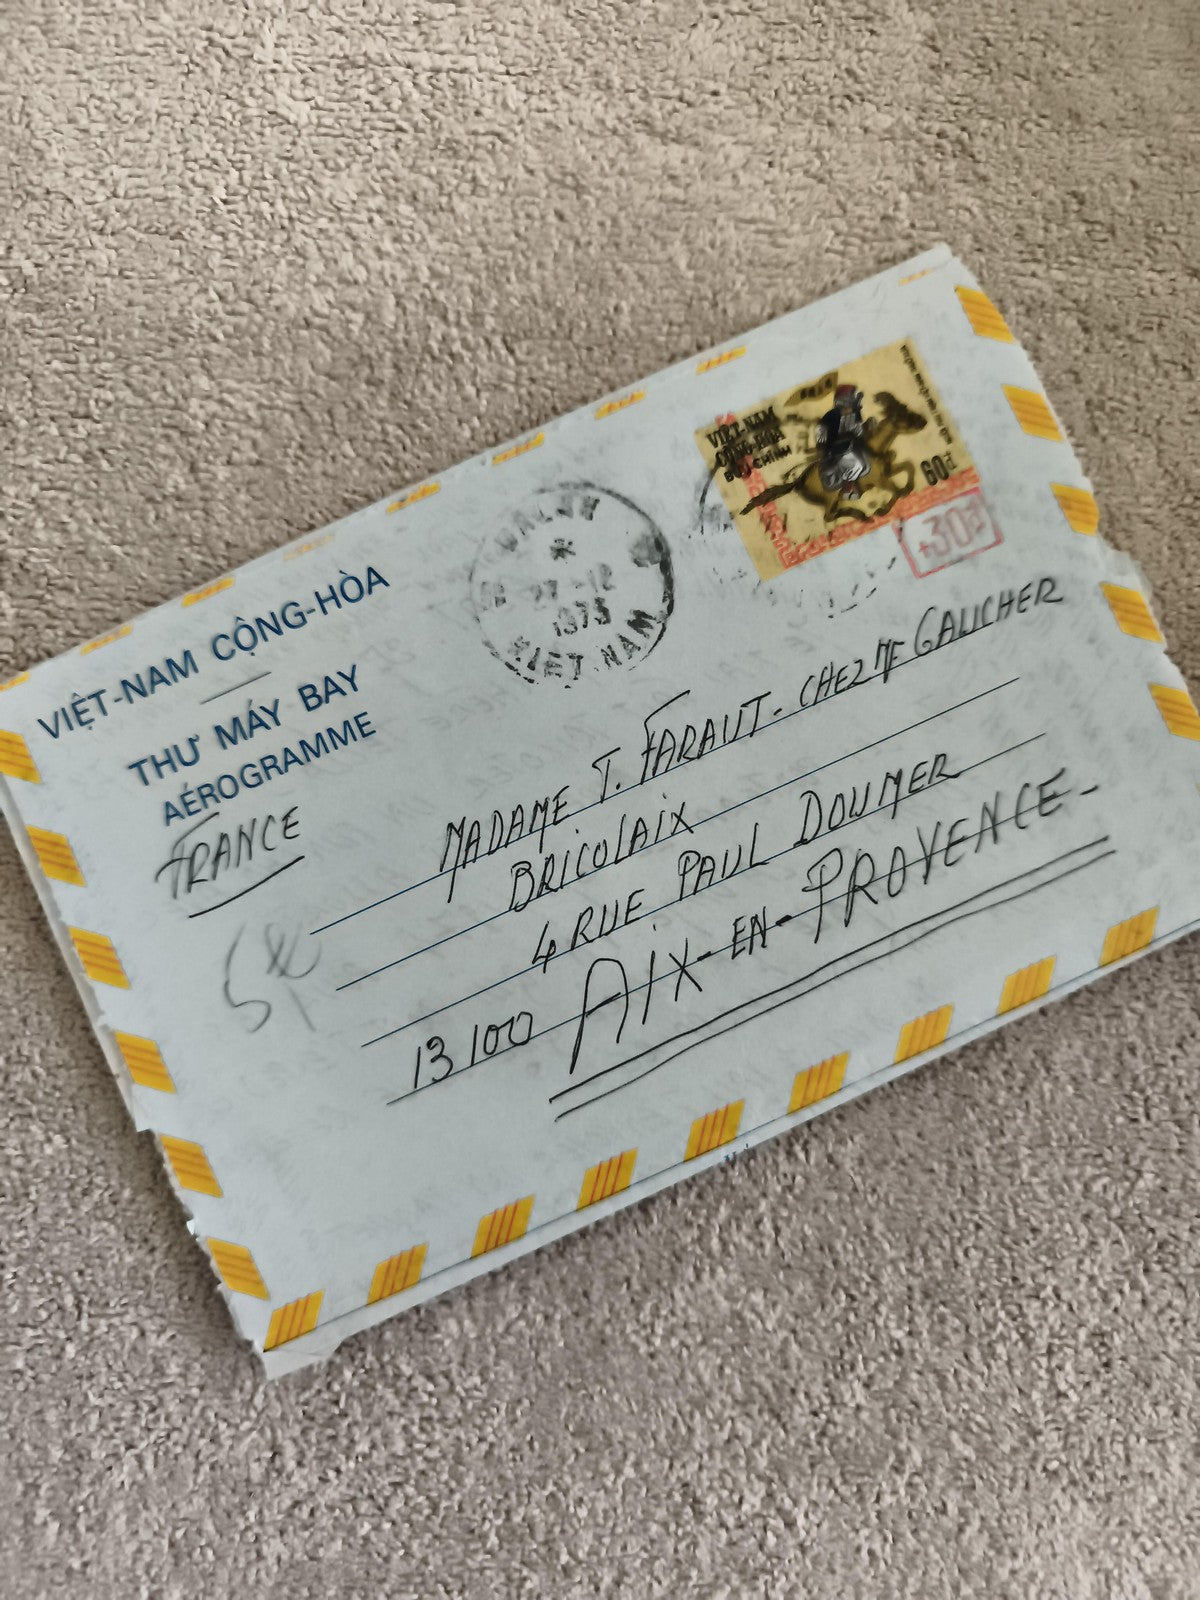 VIỆT-NAM CỘNG-HÒA
THƯ MÁY BAY
AÉROGRAMME
FRANCE
DALAT
27-12
1973
VIET-NAM
VIỆT-NAM
CỘNG-HÒA
BƯU CHÍNH
60đ
+30đ
MADAME T. FARAUT - CHEZ MR GAUCHER
BRICOLAIX
4 RUE PAUL DOUMER
13100 AIX-EN-PROVENCE-